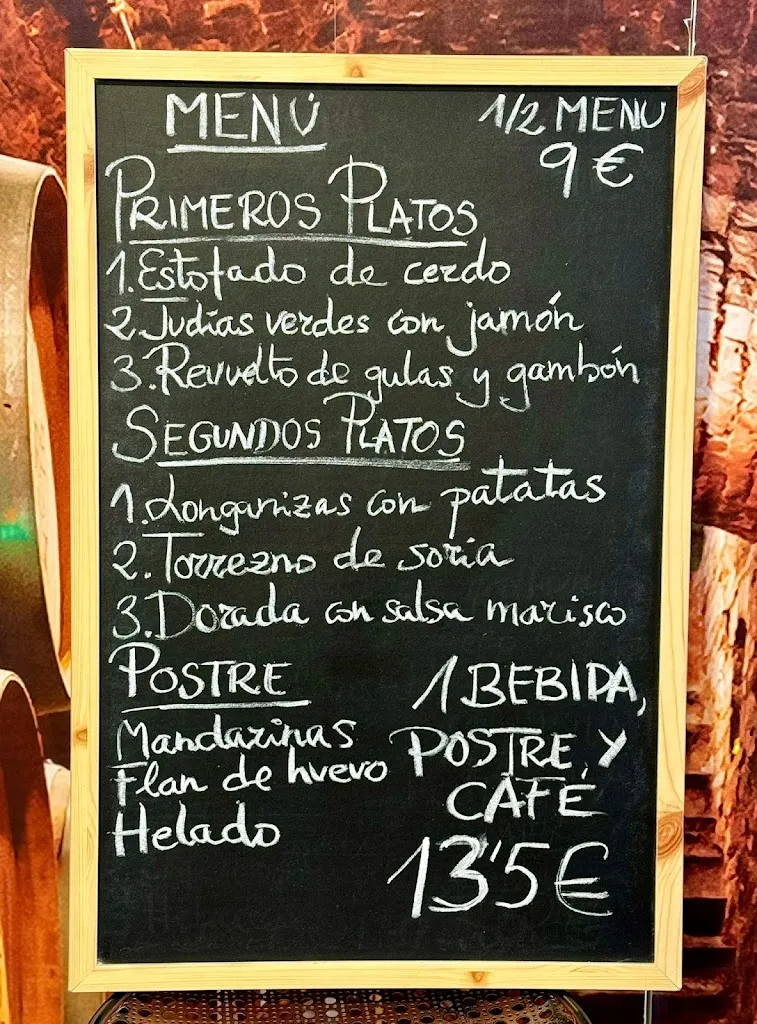 MENÚ
1/2 MENU
9 €
PRIMEROS PLATOS
1. Estofado de cerdo
2. Judías verdes con jamón
3. Revuelto de gulas y gambón
SEGUNDOS PLATOS
1. Longanizas con patatas
2. Torrezno de soria
3. Dorada con salsa marisco
POSTRE
Mandarinas
Flan de huevo
Helado
1 BEBIDA,
POSTRE Y
CAFÉ
13'5€